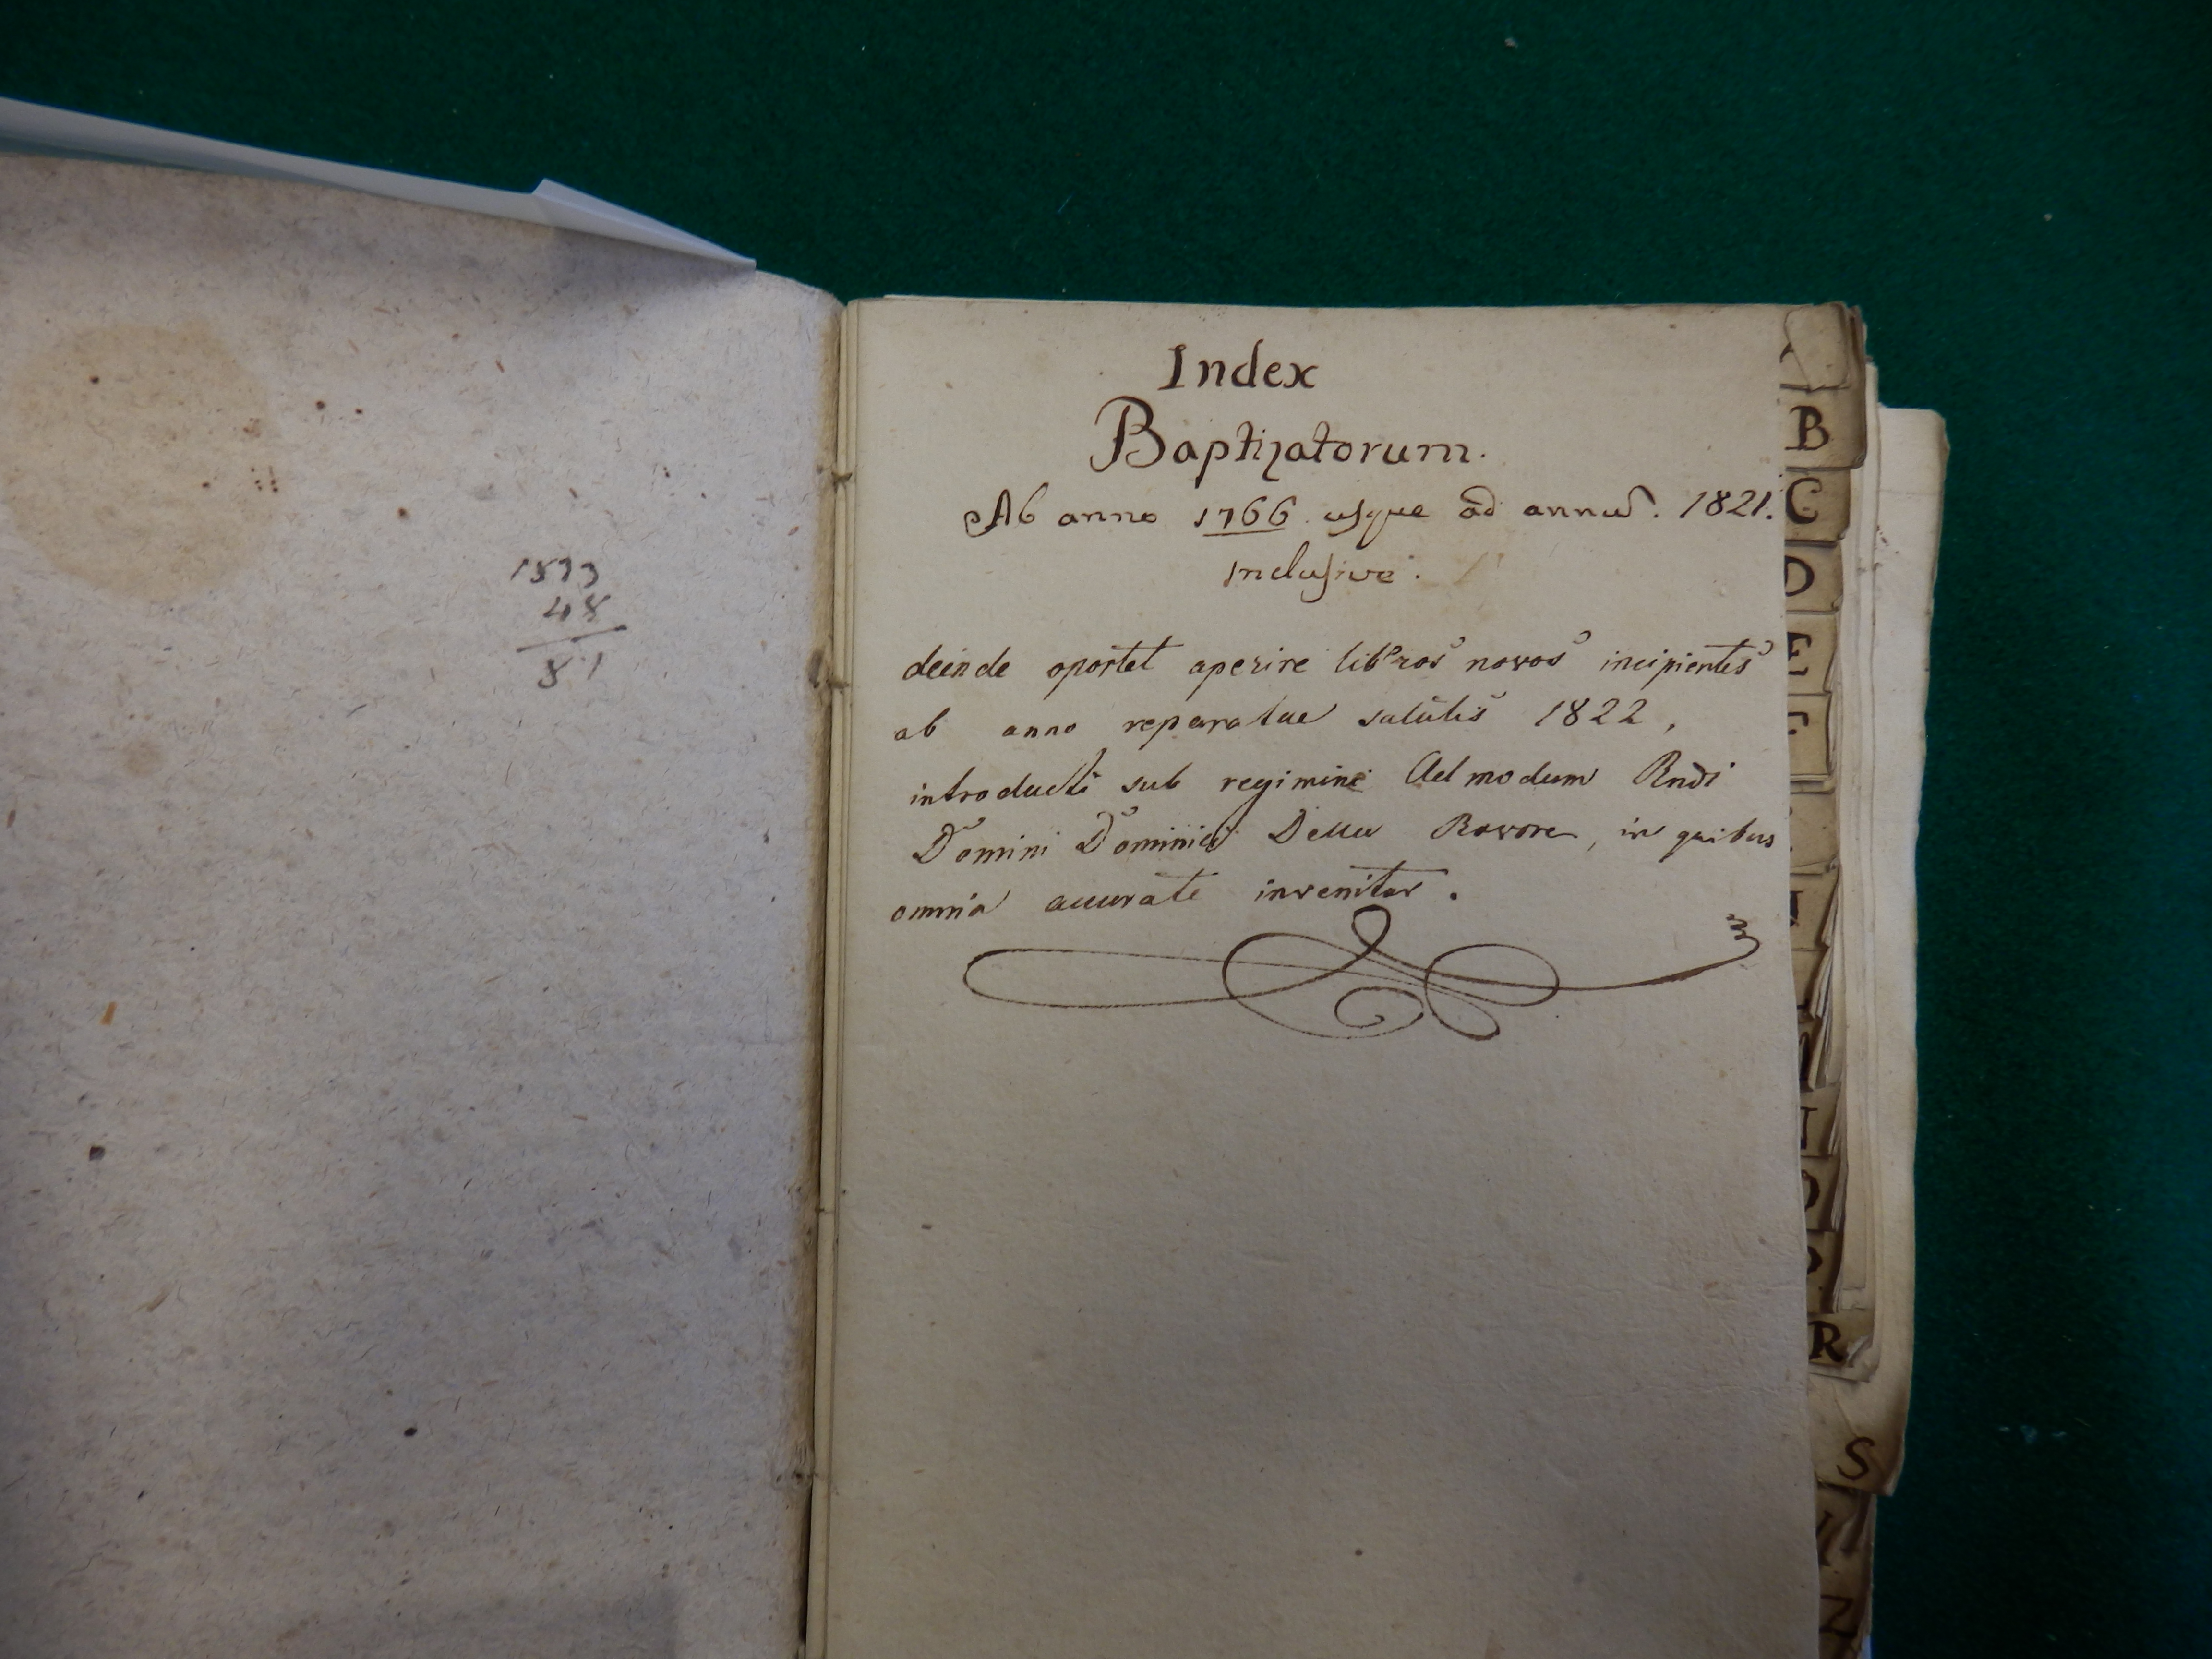 1873
48
81
Index
Baptizatorum.
Ab anno 1766 usque ad annũ. 1821.
inclusive.
deinde oportet aperire libros novos incipientes
ab anno reparatae salutis 1822,
introducti sub regimine Admodum Rndi
Domini Dominici Della Rovore, in quibus
omnia accurate invenitur.
B
C
D
E
F
R
S
Z